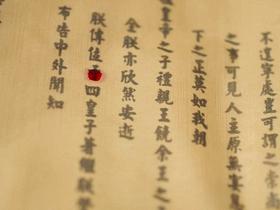 不遑寧處豈可謂之
之事可見人主原無宴息
下之正莫如我朝
皇帝之子禮親王饒余王之
全朕亦欣然安逝
朕傳位于四皇子著繼朕登
布告中外聞知